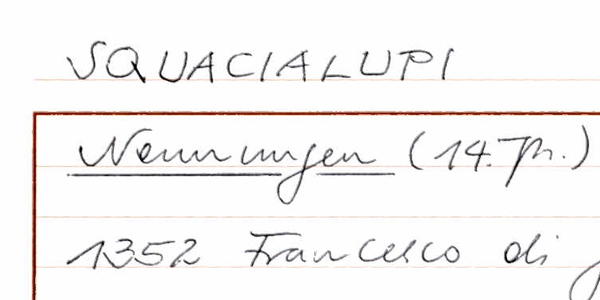 SQUACIALUPI
Nennungen (14. Jh.)
1352 Francesco di